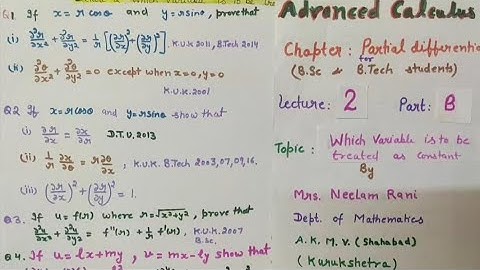 Q1. If x = r cosθ and y = r sinθ, prove that
(i) ∂²r/∂x² + ∂²r/∂y² = 1/r [(∂r/∂x)² + (∂r/∂y)²] K.U.K 2011, B.Tech 2014
(ii) ∂²θ/∂x² + ∂²θ/∂y² = 0 except when x=0, y=0
K.U.K. 2001
Q2 If x = r cosθ and y = r sinθ show that
(i) ∂r/∂x = ∂x/∂r D.T.U. 2013
(ii) 1/r ∂x/∂θ = r ∂θ/∂x, K.U.K. B.Tech 2003, 07, 09, 16.
(iii) (∂r/∂x)² + (∂r/∂y)² = 1.
Q3. If u = f(r) where r = √x²+y², prove that
∂²u/∂x² + ∂²u/∂y² = f''(r) + 1/r f'(r). K.U.K. 2007
B.Sc.
Q4. If u = lx+my, v = mx-ly show that
Advanced Calculus
Chapter: Partial differentia
for
(B.Sc & B.Tech students)
Lecture: 2 Part: B
Topic: Which Variable is to be
treated as constant
By
Mrs. Neelam Rani
Dept. of Mathematics
A. K. M. V. (Shahabad)
(Kurukshetra)